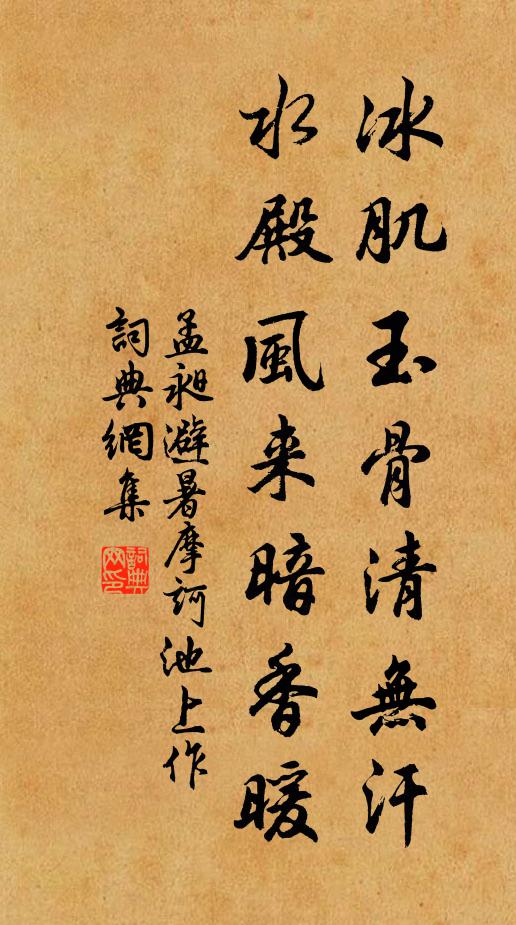 冰肌玉骨清無汗
水殿風来暗香暖
孟昶避暑摩訶池上作
詞典網集
詞典网印